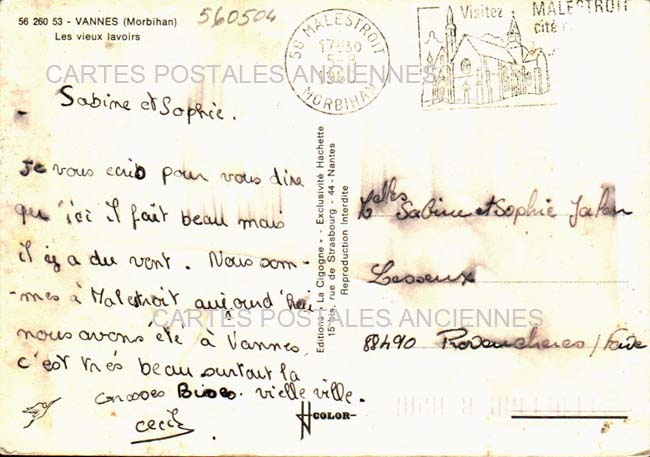 56 260 53 - VANNES (Morbihan)
Les vieux lavoirs
560504
56 MALESTROIT
17H30
MORBIHAN
Visitez MALESTROIT
cité
CARTES POSTALES ANCIENNES
Sabine et Sophie.
Je vous ecris pour vous dire
qu'ici il fait beau mais
il y a du vent. Nous som-
-mes à Malestroit aujourd'hui
nous avons été à Vannes
c'est très beau surtout la
vielle ville.
Grosses Bises.
Cecile
Editions « La Cigogne » - Exclusivité Hachette
15 bis, rue de Strasbourg - 44 - Nantes
Reproduction Interdite
Sabine et Sophie
Lesseux
88490 Provencheres / Fave
CARTES POSTALES ANCIENNES
COLOR